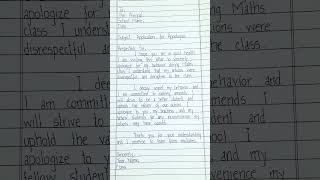 To,
The Principal,
School Name,
Date:
Subject: Application for Apology
Respected Sir,
I hope you are in good health.
I am writing this letter to sincerely
apologize for my behavior during Maths
class. I understand that my actions were
disrespectful and disruptive to the class.
I deeply regret my behavior and
I am committed to making amends. I
will strive to be a better student and
uphold the values of our school. I
apologize to you, my teachers, and my
fellow students for any inconvenience my
actions may have caused.
Thank you for your understanding
and I promise to learn from mistakes.
Sincerely,
Your Name,
Class
apologize for
class. I underst
disrespectful a
I dee
I am commit
will strive
uphold the va
apologize to y
fellow studen
ing Maths
tions were
the class
behavior and
mends. I
udent and
school. I
and my
nvenience my